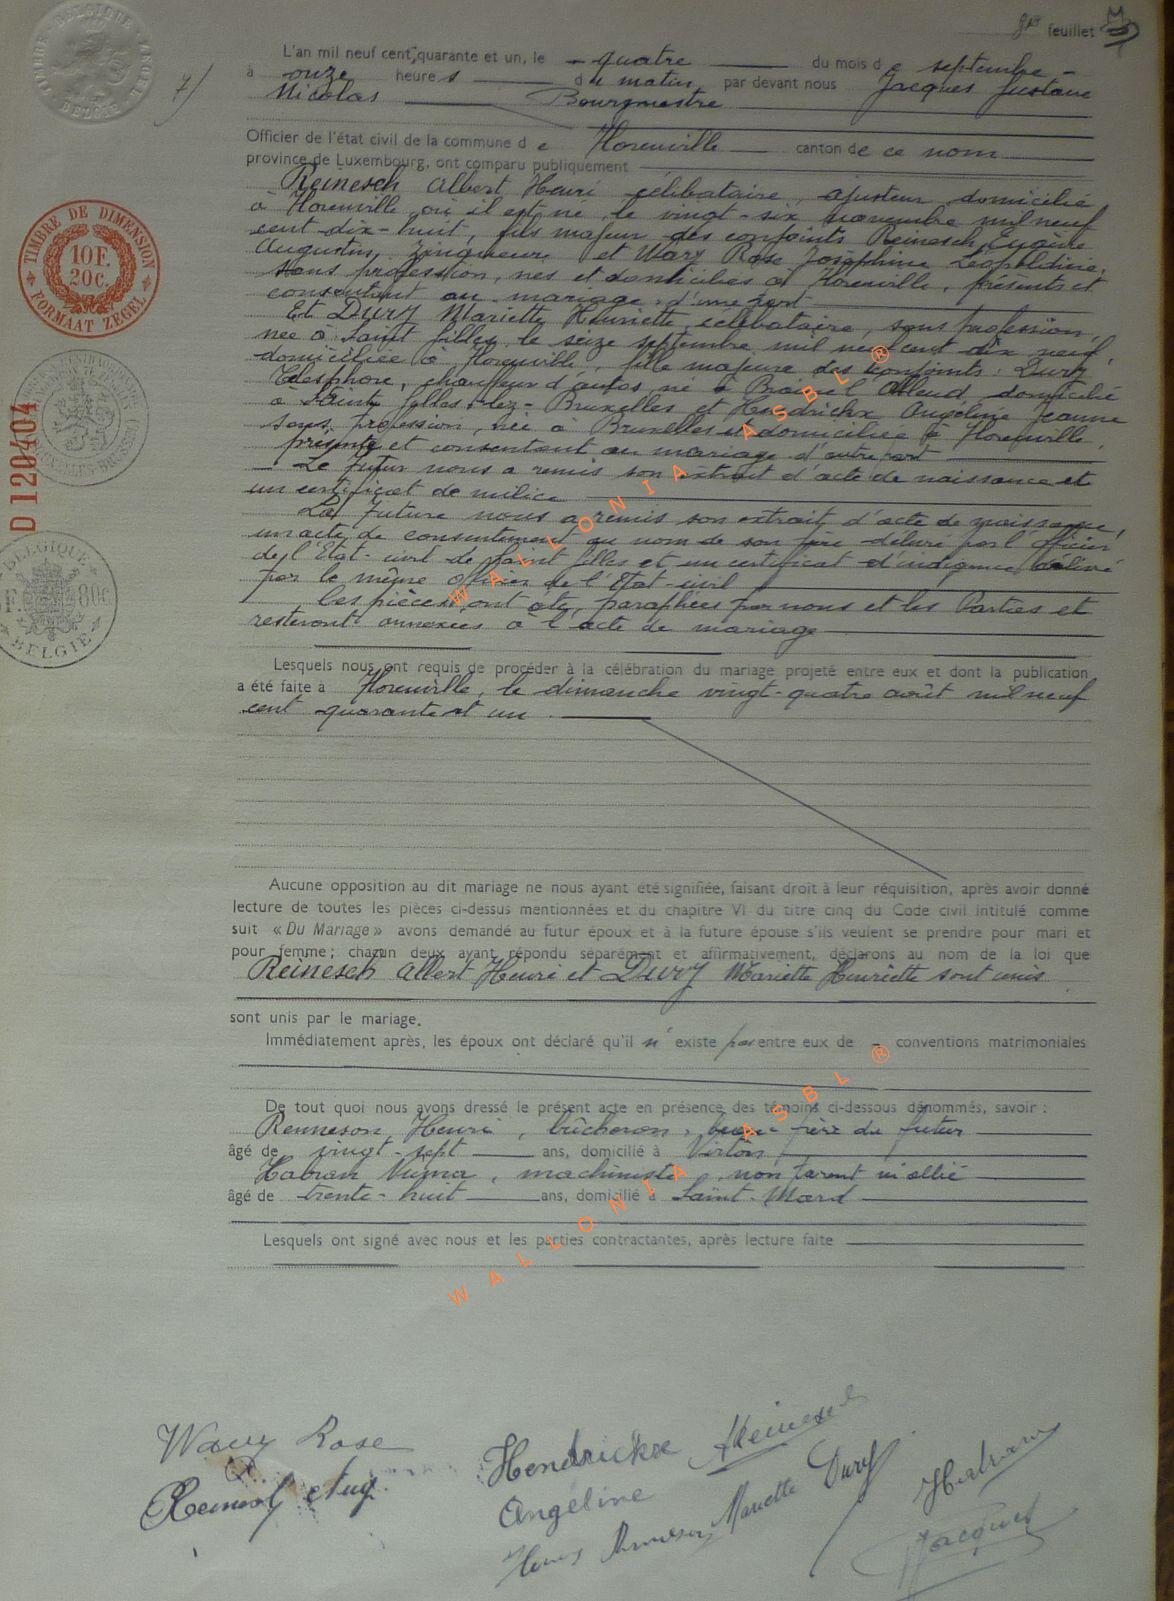 feuillet
7/
L'an mil neuf cent quarante et un, le - quatre du mois de septembre -
à onze heures du matin par devant nous Jacques Gustave
Nicolas Bourgmestre
Officier de l'état civil de la commune de Florenville canton de ce nom
province de Luxembourg, ont comparu publiquement
Reinesch Albert Henri célibataire, ajusteur domicilié
à Florenville où il est né, le vingt-six novembre mil neuf
cent dix-huit, fils majeur des conjoints Reinesch, Eugène
Augustin, zingueur et Wary Rose Joséphine Léopoldine,
sans profession, nés et domiciliés à Florenville, présents et
consentant au mariage, d'une part
Et Dury Mariette Henriette, célibataire, sans profession,
née à Saint Gilles, le seize septembre mil neuf cent dix neuf,
domiciliée à Florenville, fille majeure des conjoints : Dury
Télesphore, chauffeur d'autos, né à Braine l'Alleud, domicilié
à Saint Gilles-lez-Bruxelles et Hendrickx Angéline Jeanne
sans profession, née à Bruxelles et domiciliée à Florenville,
présente et consentant au mariage d'autre part
- Le futur nous a remis son extrait d'acte de naissance et
un certificat de milice
La future nous a remis son extrait d'acte de naissance,
un acte de consentement au nom de son père délivré par l'officier
de l'Etat-civil de Saint Gilles et un certificat d'indigence délivré
par le même officier de l'Etat-civil
Ces pièces ont été, paraphées par nous et les Parties et
resteront annexées à l'acte de mariage
Lesquels nous ont requis de procéder à la célébration du mariage projeté entre eux et dont la publication
a été faite à Florenville, le dimanche vingt-quatre août mil neuf
cent quarante et un
Aucune opposition au dit mariage ne nous ayant été signifiée, faisant droit à leur réquisition, après avoir donné
lecture de toutes les pièces ci-dessus mentionnées et du chapitre VI du titre cinq du Code civil intitulé comme
suit « Du Mariage » avons demandé au futur époux et à la future épouse s'ils veulent se prendre pour mari et
pour femme ; chacun deux ayant répondu séparément et affirmativement, déclarons au nom de la loi que
Reinesch Albert Henri et Dury Mariette Henriette sont unis
sont unis par le mariage.
Immédiatement après, les époux ont déclaré qu'il n'existe pas entre eux de - conventions matrimoniales
De tout quoi nous avons dressé le présent acte en présence des témoins ci-dessous dénommés, savoir :
Renneson Henri, bûcheron, beau-frère du futur
âgé de vingt-sept ans, domicilié à Virton
Habran Numa, machiniste, non parent ni allié
âgé de trente-huit ans, domicilié à Saint-Mard
Lesquels ont signé avec nous et les parties contractantes, après lecture faite
Wary Rose
Hendrickx
Angéline
Mariette Dury
Habran
Jacques
TIMBRE DE DIMENSION
10F.
20c.
FORMAAT ZEGEL
D 120404
BELGIQUE
F. 80c
BELGIE
WALLONIA ASBL ®
WALLONIA ASBL ®